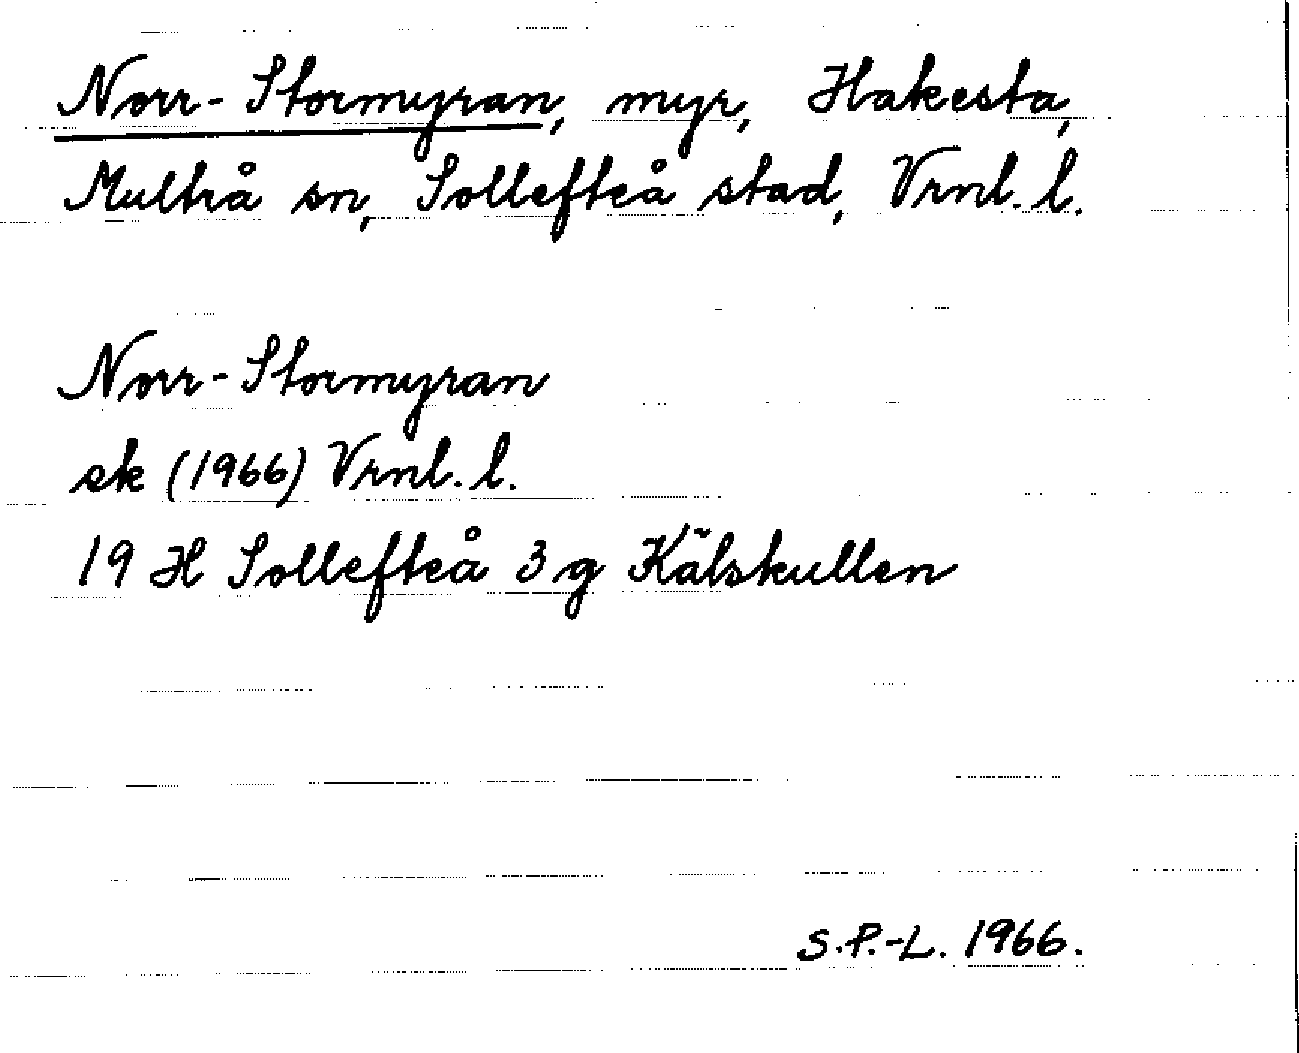 Norr-Stormyran, myr, Hakesta,
Multrå sn, Sollefteå stad, Vrnl. l.
Norr-Stormyran
ek (1966) Vrnl. l.
19 H Sollefteå 3 g Kälskullen
S.P.-L. 1966.